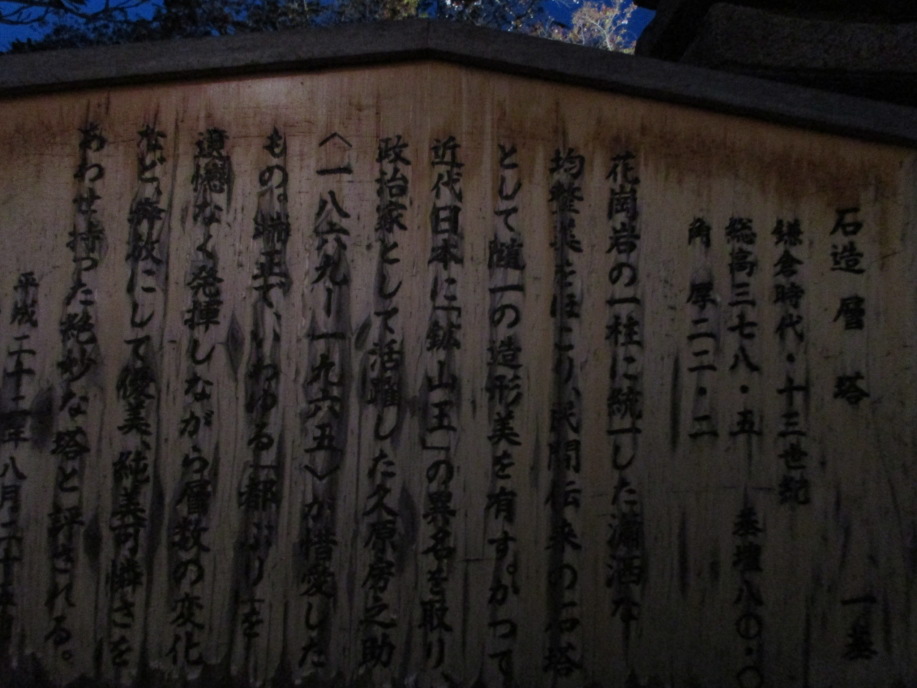 石造 層塔 一基
鎌倉時代・十三世紀
総高三七八・五 基壇八〇・〇
角 厚二二・二
花崗岩の一柱に統一した瀟洒な
均整美をほこり、民間伝来の石塔
として随一の造形美を有す。かつて
近代日本に「鉱山王」の異名を取り、
政治家として活躍した久原房之助
〈一八六九ー一九六五〉が惜愛した
もの。端正で、いわゆる「都ぶり」を
遺憾なく発揮しながら層数の変化
など、奔放にして優美、純美可憐さを
あわせ持った絶妙な塔と評される。
平成二十二年八月二十